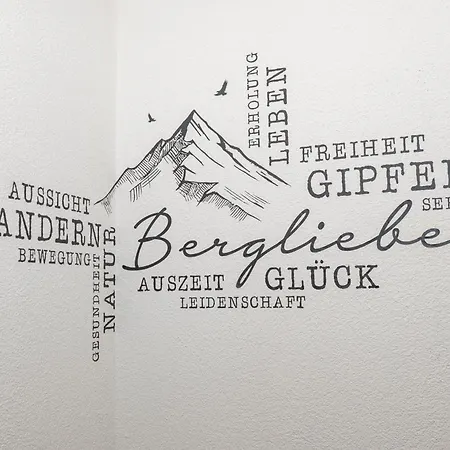 ERHOLUNG
LEBEN
FREIHEIT
GIPFEL
AUSSICHT
ANDERN
BEWEGUNG
GESUNDHEIT
NATUR
Bergliebe
SEE
AUSZEIT
GLÜCK
LEIDENSCHAFT